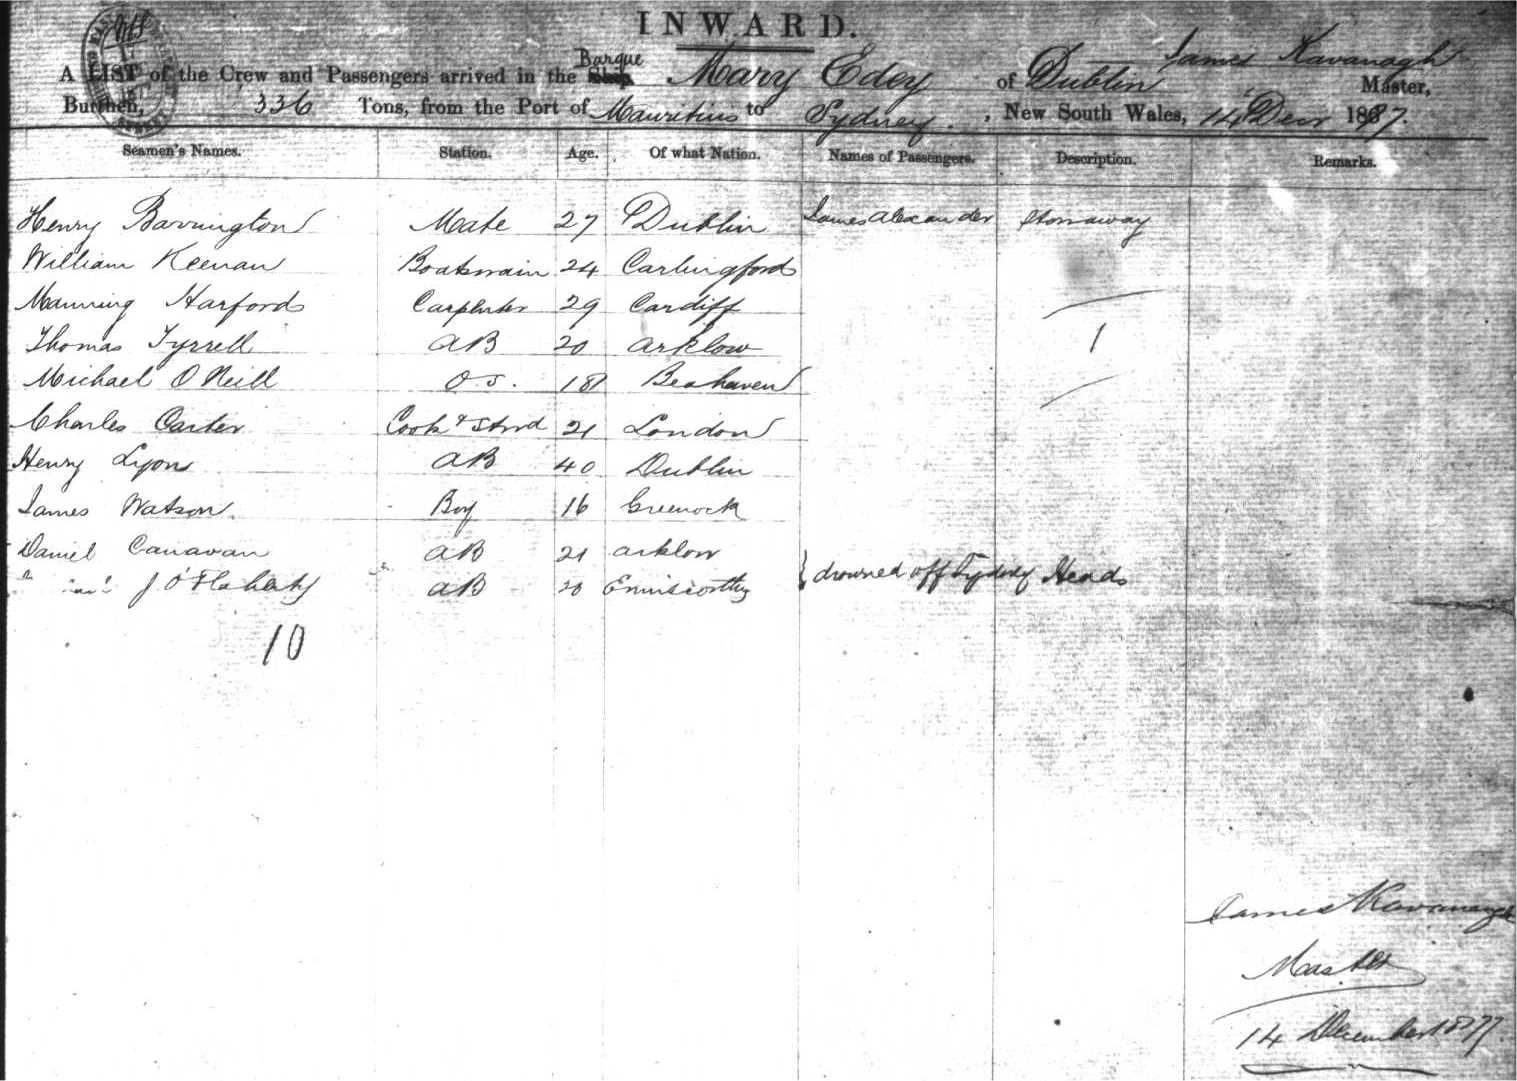 INWARD.
A LIST of the Crew and Passengers arrived in the Barque Mary Edey of Dublin James Kavanagh Master,
Burthen, 336 Tons, from the Port of Mauritius to Sydney, New South Wales, 14 Decr 1877.
Seamen's Names. Station. Age. Of what Nation. Names of Passengers. Description. Remarks.
Henry Barrington Mate 27 Dublin James Alexander Stowaway
William Keenan Boatswain 24 Carlingford
Manning Harford Carpenter 29 Cardiff
Thomas Tyrrell AB 20 Arklow 1
Michael O'Neill O.S. 18 Beahaven
Charles Carter Cook & Stwd 21 London
Henry Lyons AB 40 Dublin
James Watson Boy 16 Greenock
Daniel Canavan AB 21 Arklow
J O'Flaherty AB 20 Enniscorthy } drowned off Sydney Heads
10
James Kavanagh
Master
14 December 1877